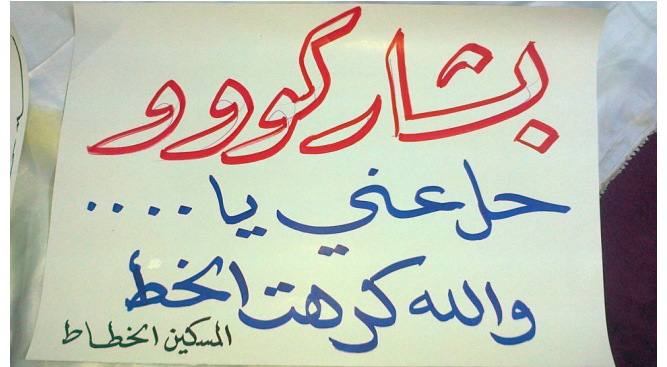 بشار كووو
حل عني يا ....
والله كرهت الخط
المسكين الخطاط